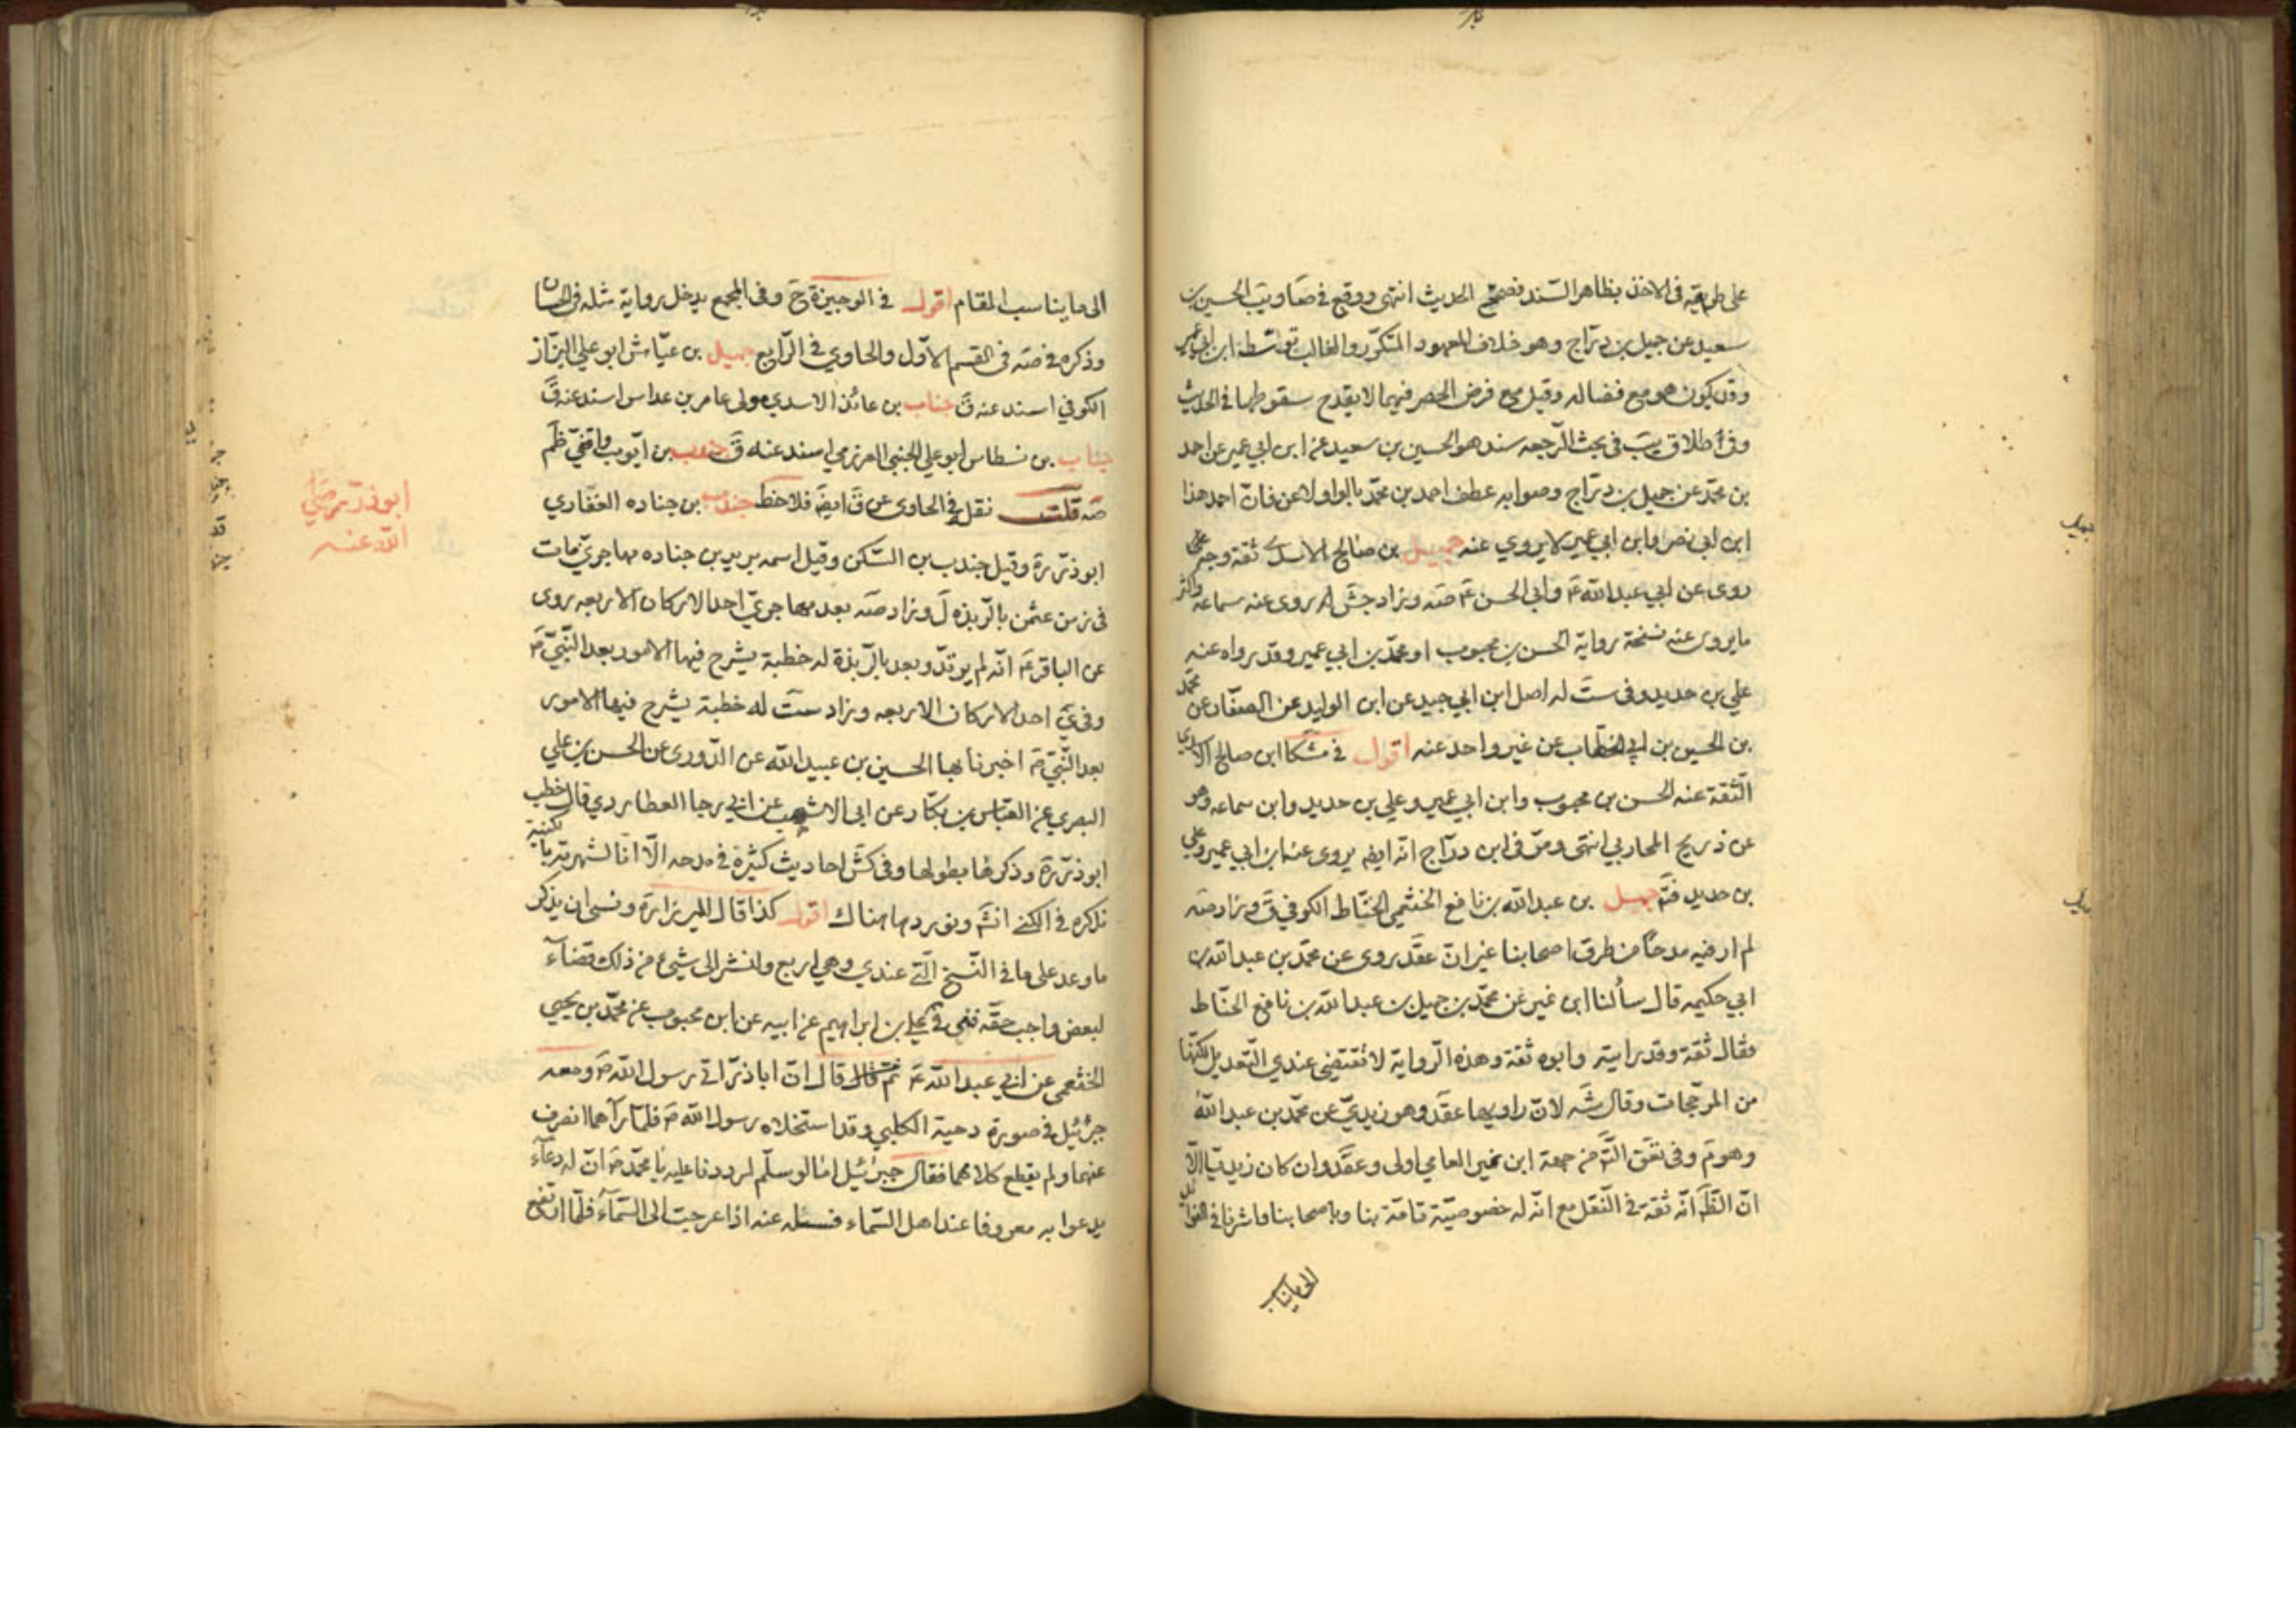 على طريقته في الاخذ بظاهر السند فصحح الحديث انتهى ووقع في صا ويب الحسين بن
سعيد عن جميل بن دراج وهو خلاف المعهود المتكرر والغالب توسط ابن ابي عمير
وقد يكون هو مع فضاله وقيل مع فرض الحصر فيهما لا يقدح سقوطهما في الحديث
وفي اطلاق يب في بحث الرجعه سند هو الحسين بن سعيد عن ابن ابي عمير عن احمد
بن محمد عن جميل بن دراج وصوابه عطف احمد بن محمد بالواو لا عن فان احمد هذا
ابن ابي نصر وابن ابي عمير لا يروي عنه جميل بن صالح الاسدي ثقة وجه
روى عن ابي عبد الله ع وابي الحسن ع صه وزاد جش روى عنه سماعه واكثر
ما يروى عنه نسخة رواية الحسن بن محبوب او محمد بن ابي عمير وقد رواه عنه
علي بن حديد وفي ست له اصل ابن ابي جيد عن ابن الوليد عن الصفار عن محمد
بن الحسين بن ابي الخطاب عن غير واحد عنه اقول في مشكا ابن صالح الاسدي
الثقة عنه الحسن بن محبوب وابن ابي عمير وعلي بن حديد وابن سماعه وهو
عن ذريح المحاربي انتهى ومر في ابن دراج انه ايضا يروى عنه ابن ابي عمير وعلي
بن حديد فتم جميل بن عبد الله بن نافع الخثعمي الخياط الكوفي ق وزاد صه
لم ار فيه مدحا من طرق اصحابنا غير ان عقد روى عن محمد بن عبد الله بن
ابي حكيمه قال سألنا ابن نمير عن محمد بن جميل بن عبد الله بن نافع الحناط
فقال ثقة وقد رايته وابوه ثقة وهذه الرواية لا تقتضي عندي التعديل لكنها
من المرجحات وقال شه لان راويها عقد وهو زيدي عن محمد بن عبد الله
وهو م وفي تعق التم من جهة ابن نمير العامي اولى وعقد وان كان زيديا الا
ان الظ انه ثقة في النقل مع انه له خصوصية تامة بنا وباصحابنا واشرنا في الفوائد
الى ما يناسب
جميل
الى ما يناسب المقام اقول في الوجيزة ح وفي المجمع يدخل رواية مثله في الحسان
وذكره في صه في القسم الاول والحاوي في الرابع جميل بن عياش ابو علي البزاز
الكوفي اسند عنه ق جناب بن عائذ الاسدي مولى عامر بن عداس اسند عنه ق
جناب بن نسطاس ابو علي الجنبي العرزمي اسند عنه ق جندب بن ايوب واقفي ظم
صه قلت نقل في الحاوى عن ق ايضا فلاحظ جندب بن جناده الغفاري
ابوذر ره وقيل جندب بن السكن وقيل اسمه برير بن جناده مهاجري مات
في زمن عثمن بالربذه ل وزاد صه بعد مهاجري احد الاركان الاربعه روى
عن الباقر ع انه لم يرتد وبعد بالربذة له خطبة يشرح فيها الامور بعد النبي ص
وفي ي احد الاركان الاربعه وزاد ست له خطبة يشرح فيها الامور
بعد النبي ص اخبرنا بها الحسين بن عبيد الله عن الدورى عن الحسن بن علي
البصري عن العباس بن بكار عن ابي الاشهب عن ابي رجا العطاردي قال خطب
ابوذر ره وذكرها بطولها وفي كش احاديث كثيرة في مدحه الا انا لشهرته بكنيته
نذكره في الكنى انش ونوردها هناك اقول كذا قال الميرزا ره ونسى ان يذكر
ما وعد على ما في النسخ التي عندي وهي اربع ولنشر الى شيئ من ذلك قضاء
لبعض واجب حقه ففي في علي بن ابراهيم عن ابيه عن ابن محبوب عن محمد بن يحيى
الخثعمي عن ابي عبد الله ع ثم قال قال ان اباذر اتى رسول الله ص ومعه
جبرئيل في صورة دحية الكلبي وقد استخلاه رسول الله ص فلما رآهما انصرف
عنهما ولم يقطع كلامهما فقال جبرئيل اما لو سلم لرددنا عليه يا محمد ص ان له دعاء
يدعوا به معروفا عند اهل السماء فسله عنه اذا عرجت الى السماء فلما ارتفع
ابوذر رضي
الله عنه